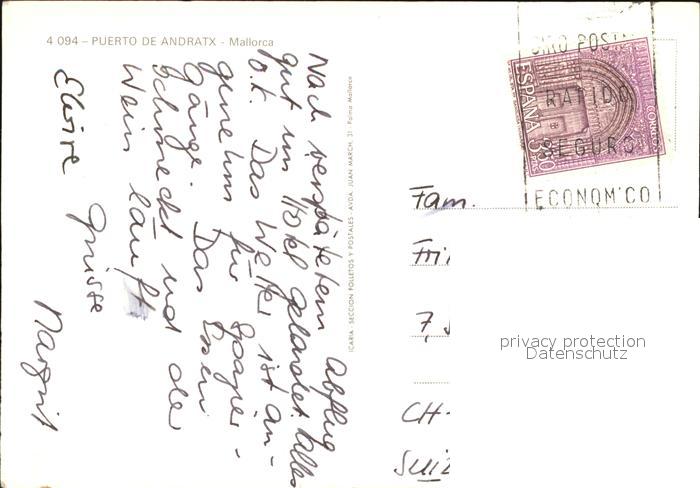 4 094 – PUERTO DE ANDRATX - Mallorca
Nach verspätetem Abflug
gut im Hotel gelandet. Alles
o.k. Das Wetter ist an-
genehm für Spazier-
gänge. Das Essen
schmeckt und der
Wein läuft
Grüsse
Margrit
ICARIA · SECCION FOLLETOS Y POSTALES - AVDA. JUAN MARCH, 31 · Palma Mallorca
GIRO POSTAL
RAPIDO
SEGURO
ECONOMICO
ESPAÑA
CORREOS
Fam.
Fri
7,
CH-
SUIZ
privacy protection
Datenschutz